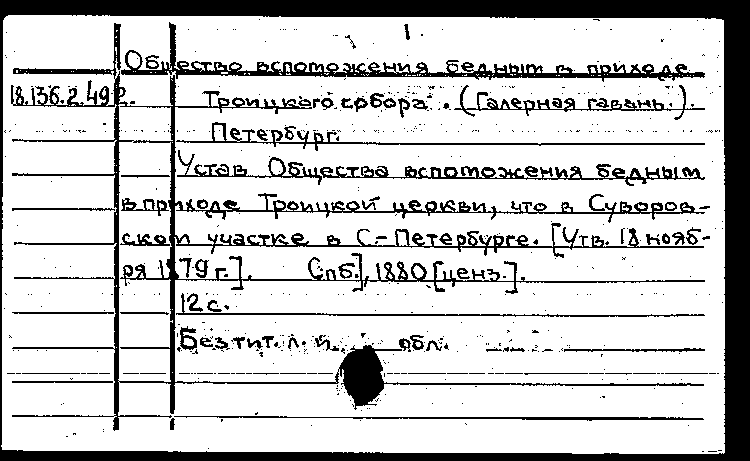 1.
Общество вспотожения бедным в приходе
18.136.2.492. Троицкого собора. (Галерная гавань.).
Петербург.
Устав Общества вспотожения бедным
в приходе Троицкой церкви, что в Суворов-
ском участке в С.-Петербурге. [Утв. 18 нояб-
ря 1879 г.]. Спб.], 1880 [ценз.].
12 с.
Без тит. л. и обл.